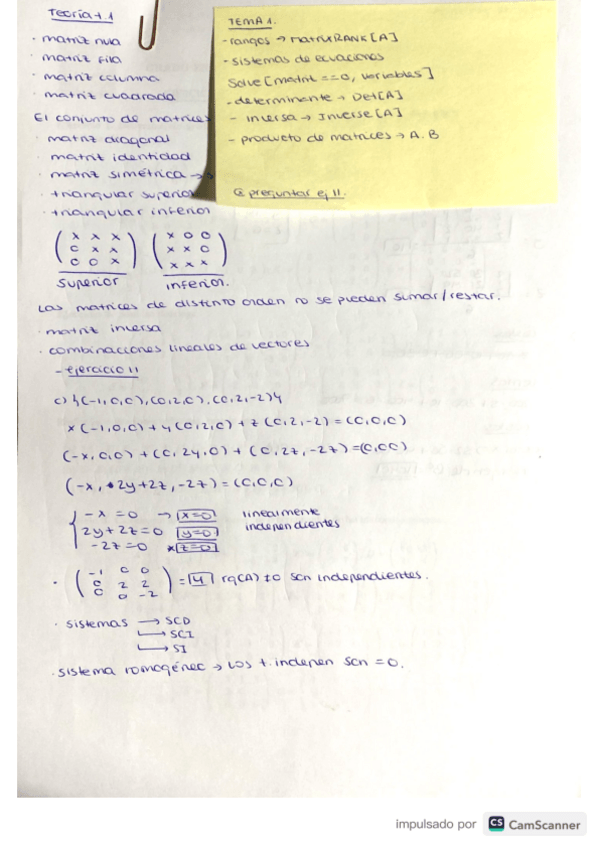 Teoría t.1
· matriz nula
· matriz fila
· matriz columna
· matriz cuadrada
El conjunto de matrices
· matriz diagonal
· matriz identidad
· matriz simétrica →
· triangular superior
· triangular inferior
TEMA 1.
- rangos → MatrixRANK[A]
- sistemas de ecuaciones
Solve[matriz ==0, variables]
- determinante → Det[A]
- inversa → Inverse[A]
- producto de matrices → A.B
@ preguntar ej 11.
( x x x ) ( x 0 0 )
( 0 x x ) ( x x 0 )
( 0 0 x ) ( x x x )
superior inferior.
Las matrices de distinto orden no se pueden sumar/restar.
· matriz inversa
· combinaciones lineales de vectores
- ejercicio 11
c) {(-1,0,0),(0,2,0),(0,2,-2)}
x(-1,0,0) + y(0,2,0) + z(0,2,-2) = (0,0,0)
(-x,0,0) + (0,2y,0) + (0,2z,-2z) = (0,00)
(-x, 2y+2z, -2z) = (0,0,0)
{ -x = 0 → x=0 linealmente
2y+2z = 0 y=0 independientes
-2z = 0 z=0
· ( -1 0 0 )
( 0 2 2 ) = 4 rg(A) ≠ 0 son independientes.
( 0 0 -2 )
· sistemas → SCD
→ SCI
→ SI
· sistema homogéneo → los t. indepen son = 0.
impulsado por CS CamScanner